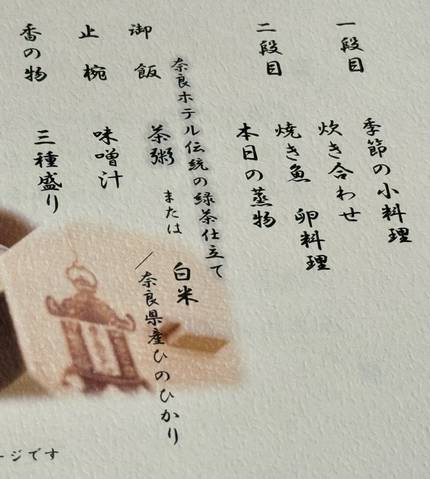 一段目
季節の小料理
炊き合わせ
二段目
焼き魚　卵料理
本日の蒸物
奈良ホテル伝統の緑茶仕立て
御飯
茶粥　または　白米／奈良県産ひのひかり
止椀
味噌汁
香の物
三種盛り
ージです